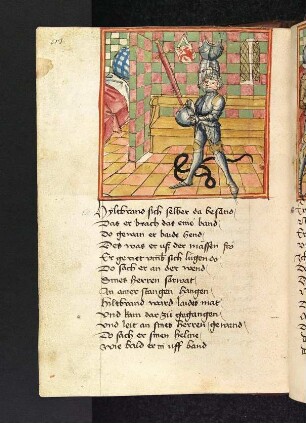 Hyltbrand sich selber da besand
Das er brach das eine band
Do gewan er baide hend
Des was er uß der massen fro
Er geriet umb sich lůgen do
Do sach er an der wend
Sines herren sarwat
An ainer stangen hangen
Hiltbrand ward laides mat
Und kam dar zů gegangen
Und leit an sines herren gewand
Do sach er sinen helme
Wie bald er in uff band